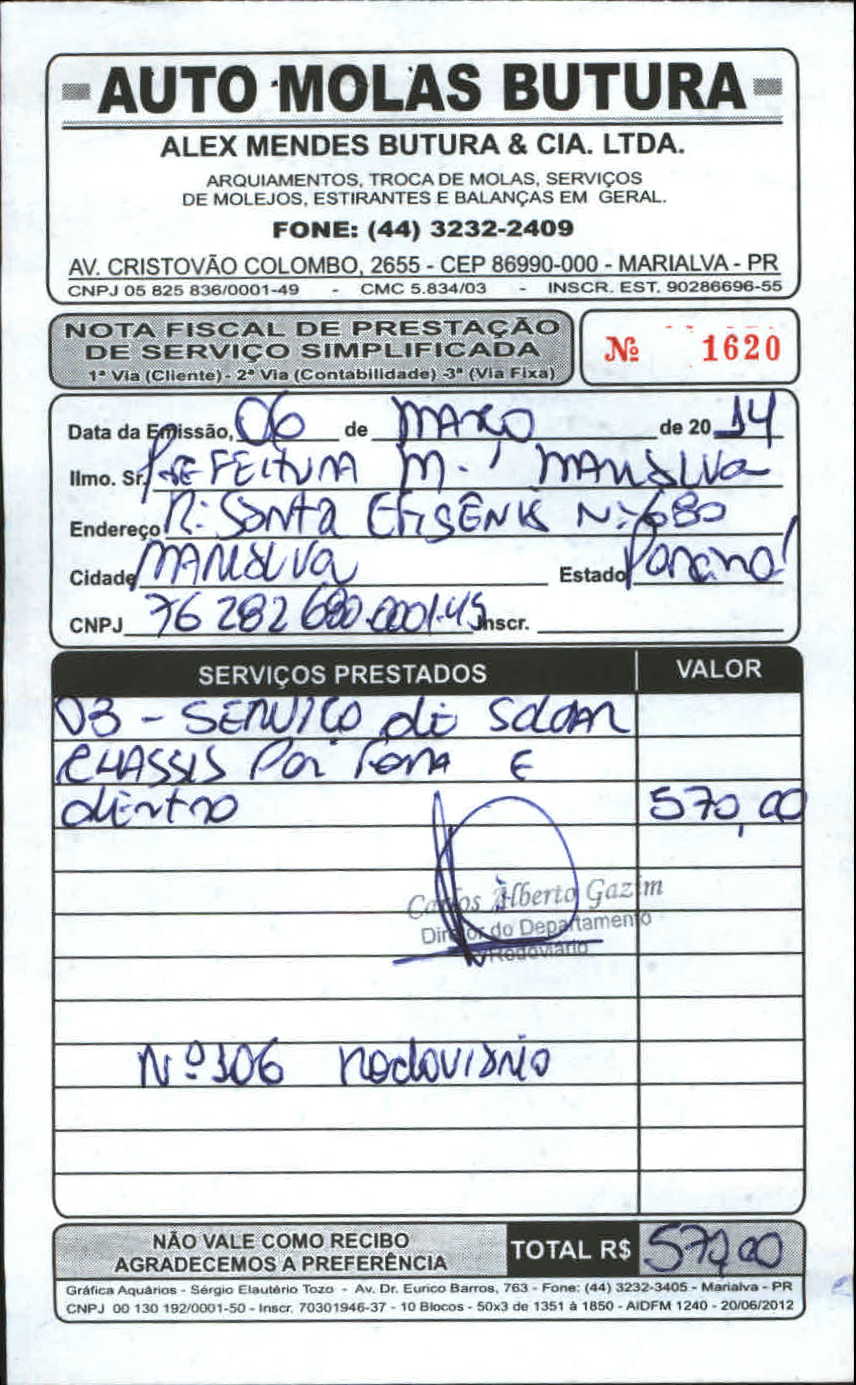 AUTO MOLAS BUTURA
ALEX MENDES BUTURA & CIA. LTDA.
ARQUIAMENTOS, TROCA DE MOLAS, SERVIÇOS
DE MOLEJOS, ESTIRANTES E BALANÇAS EM GERAL.
FONE: (44) 3232-2409
AV. CRISTOVÃO COLOMBO, 2655 - CEP 86990-000 - MARIALVA - PR
CNPJ 05 825 836/0001-49 - CMC 5.834/03 - INSCR. EST. 90286696-55
NOTA FISCAL DE PRESTAÇÃO
DE SERVIÇO SIMPLIFICADA
1ª Via (Cliente) - 2ª Via (Contabilidade) -3ª (Via Fixa)
Nº 1620
Data da Emissão, 06 de MARÇO de 20 14
Ilmo. Sr. PREFEITURA M. MARIALVA
Endereço R: SANTA EFIGÊNIA Nº 680
Cidade MARIALVA Estado Paraná
CNPJ 76 282 680.0001-45 Inscr.
SERVIÇOS PRESTADOS VALOR
03 - SERVIÇO de SOLDAR
CHASSIS Por FORA E
dentro 570,00
Carlos Alberto Gazim
Diretor do Departamento
Rodoviário
Nº 106 rodoviário
NÃO VALE COMO RECIBO
AGRADECEMOS A PREFERÊNCIA
TOTAL R$ 570,00
Gráfica Aquários - Sérgio Elautério Tozo - Av. Dr. Eurico Barros, 763 - Fone: (44) 3232-3405 - Marialva - PR
CNPJ 00 130 192/0001-50 - Inscr. 70301946-37 - 10 Blocos - 50x3 de 1351 à 1850 - AIDFM 1240 - 20/06/2012